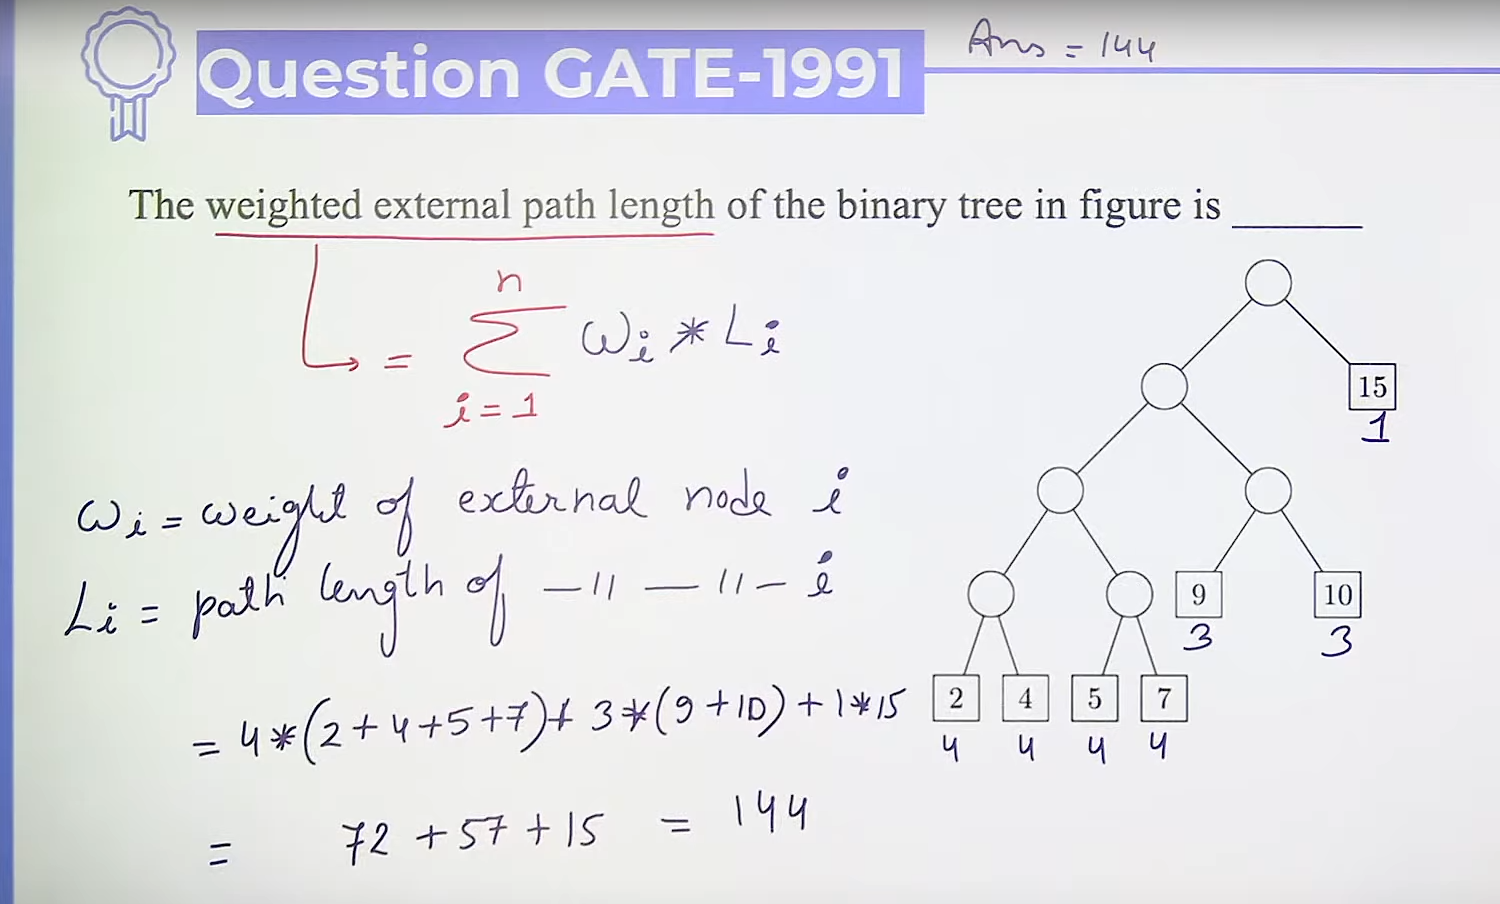 Ans = 144
Question GATE-1991
The weighted external path length of the binary tree in figure is ______
n
= Σ ωi * Li
i = 1
ωi = weight of external node i
Li = path length of —11 — 11 – i
= 4*(2+4+5+7)+ 3*(9+10)+1*15
= 72 + 57 + 15 = 144
15
1
9 10
3 3
2 4 5 7
4 4 4 4